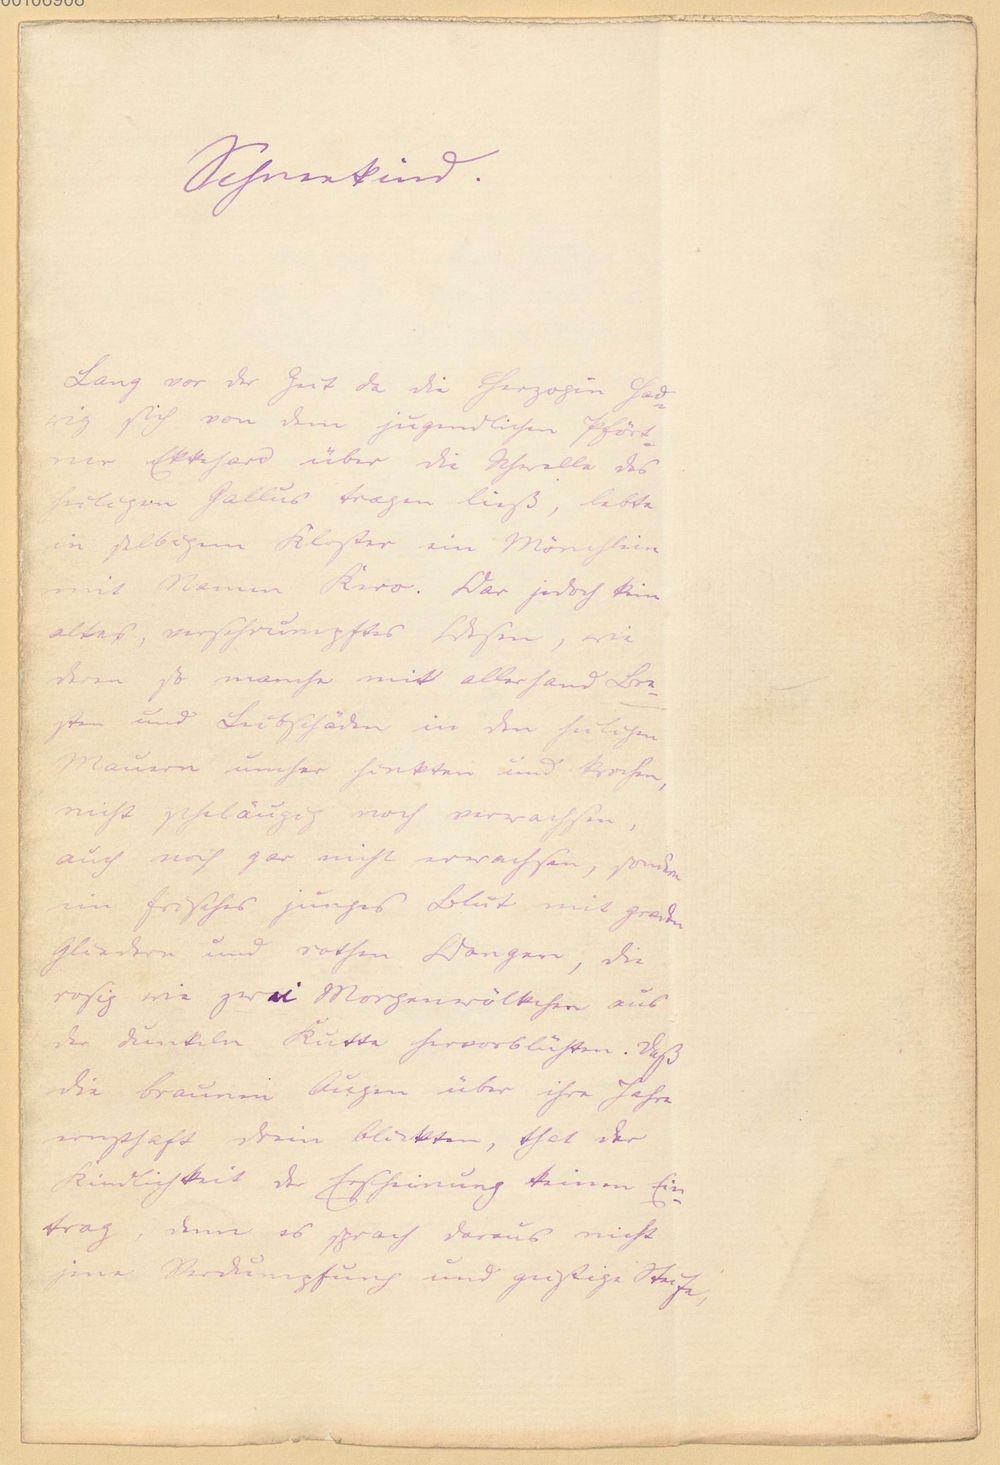 00106908
Schneekind.
Lang vor der Zeit da die Herzogin Had-
wig sich von dem jugendlichen Pfört-
ner Ekkehard über die Schwelle des
heiligen Gallus tragen ließ, lebte
in selbigem Kloster ein Mönchlein
mit Namen Kero. War jedoch kein
altes, verschrumpftes Wesen, wie
deren so manche mit allerhand Bre-
sten und Leibschäden in den heiligen
Mauern umher hinkten und krochen,
nicht scheläugig noch verwachsen,
auch noch gar nicht erwachsen, sondern
ein frisches junges Blut mit graden
Gliedern und rothen Wangen, die
rosig wie zwei Morgenwölkchen aus
der dunkeln Kutte hervorblühten. Daß
die braunen Augen über ihre Jahre
ernsthaft drein blickten, that der
Kindlichkeit der Erscheinung keinen Ein-
trag, denn es sprach daraus nicht
jene Verdumpfung und geistige Steife,